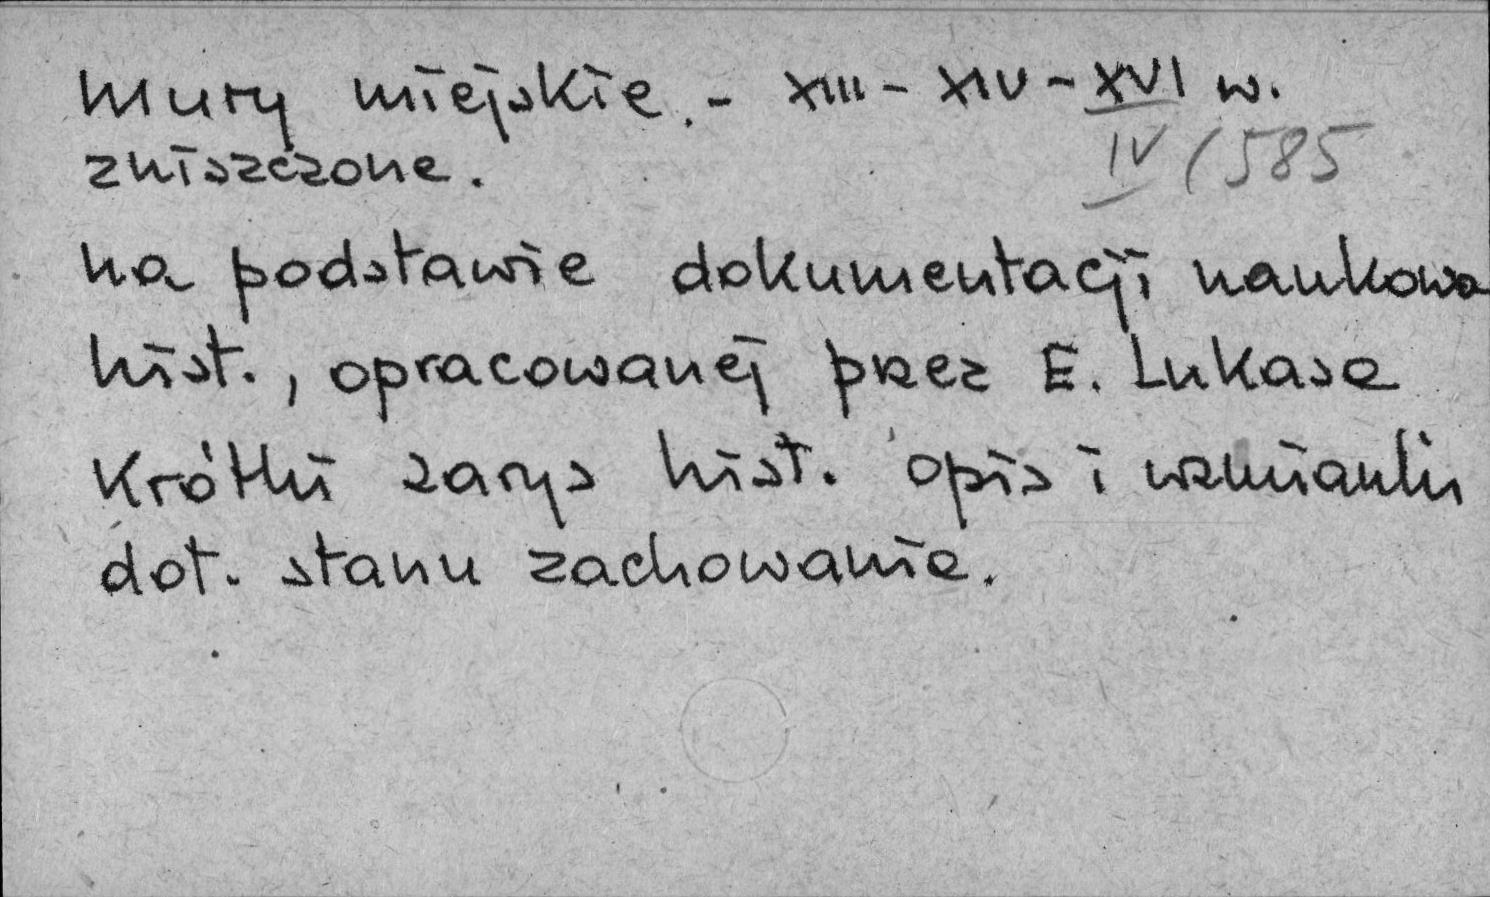 Mury miejskie. - XIII - XIV - XVI w.
IV/585
zniszczone.
na podstawie dokumentacji naukowo
hist., opracowanej przez E. Lukasa
Krótki zarys hist. opis i wzmianki
dot. stanu zachowania.